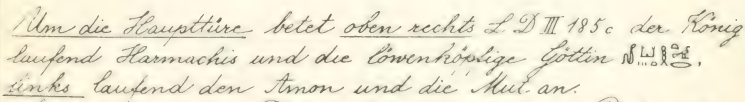 Um die Haupttüre betet oben rechts L D III 185c der König
laufend Harmachis und die löwenköpfige Göttin
links laufend den Amon und die Mut an.